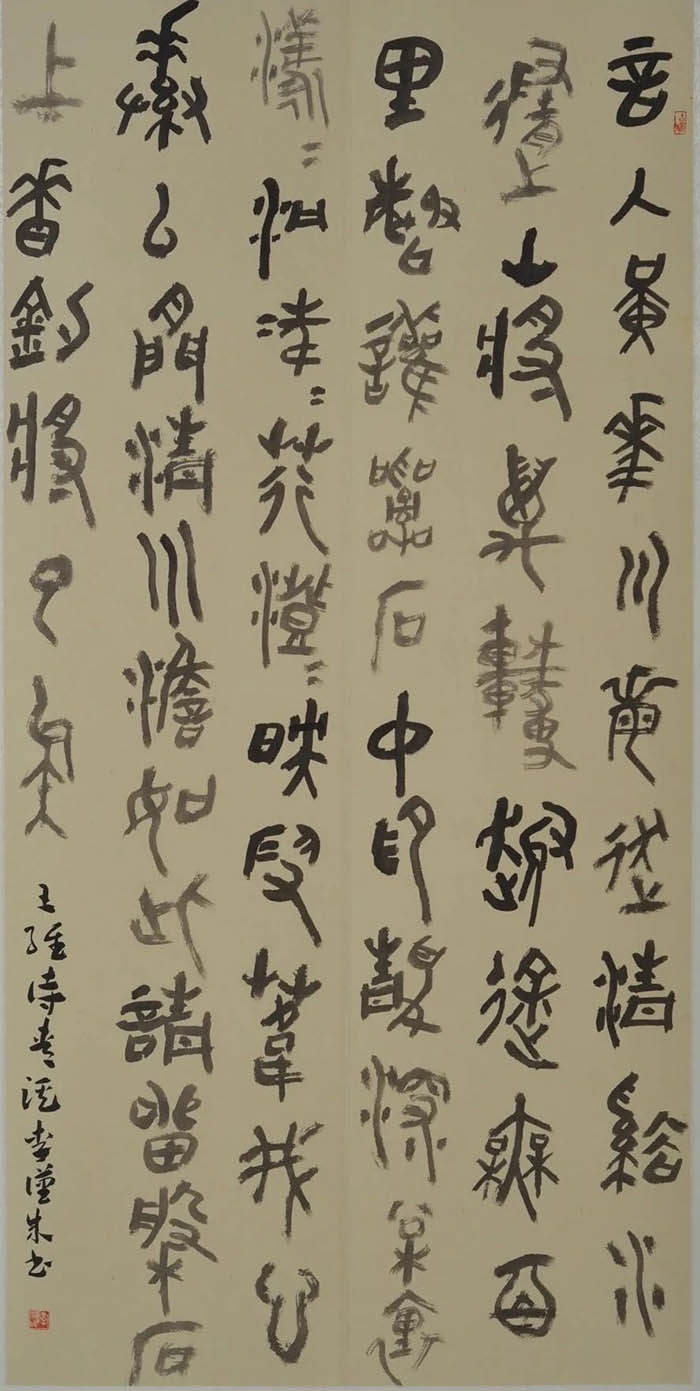 言入黃華川每逐清谿水
隨山將萬轉趣途無百
里聲喧亂石中色靜深松裏
漾〻泛菱荇澄〻映葭葦我心
素已閒清川澹如此請留盤石
上垂釣將已矣
王維詩青溪李 書